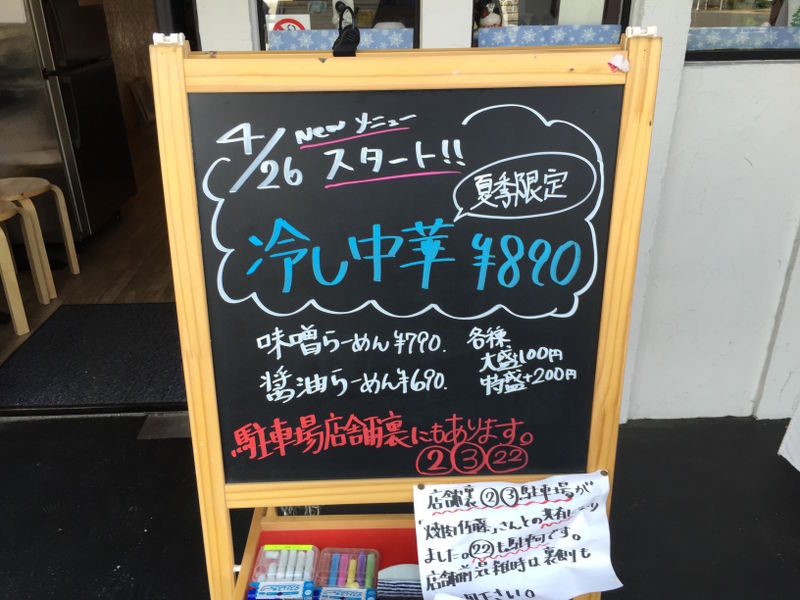 4/26 NEW メニュー
スタート!!
夏季限定
冷し中華 ¥890
味噌らーめん¥790.
醤油らーめん¥690.
各種
大盛100円
特盛+200円
駐車場店舗裏にもあります。
② ③ ㉒
店舗裏②③駐車場が
「焼肉佐藤」さんとの共有になり
ました。㉒も駐車可です。
店舗前混雑時は裏側も
下さい。